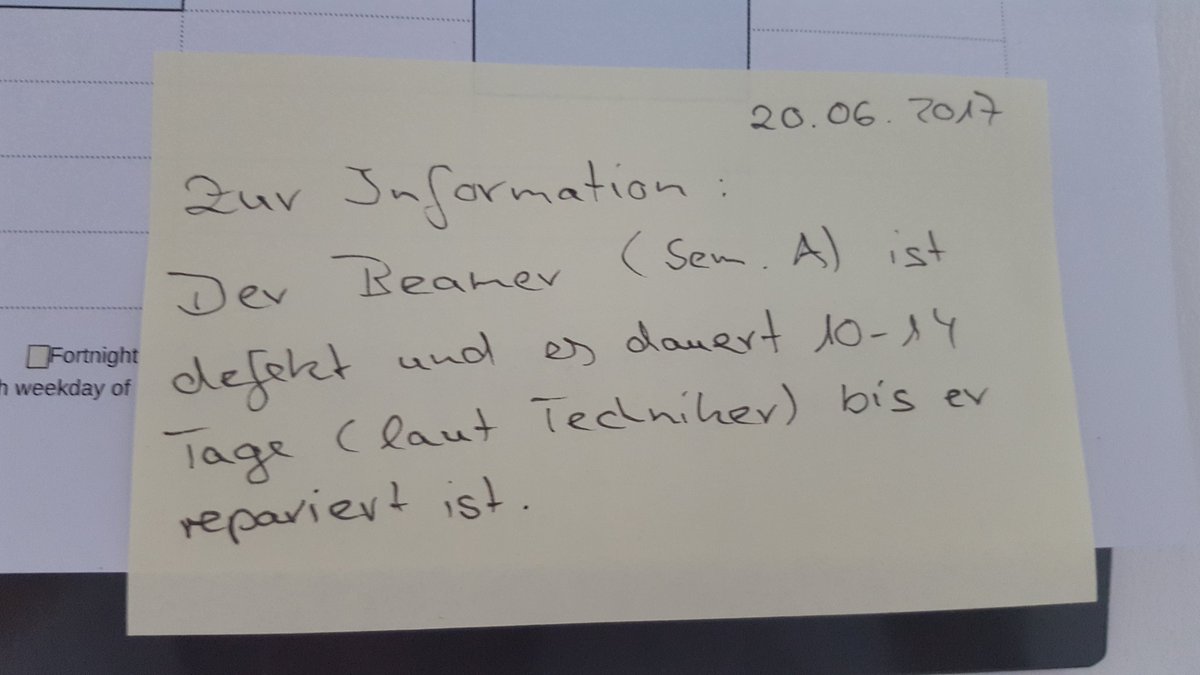 20.06.2017
Zur Information:
Der Beamer (Sem. A) ist
defekt und es dauert 10-14
Tage (laut Techniker) bis er
repariert ist.
Fortnight
h weekday of